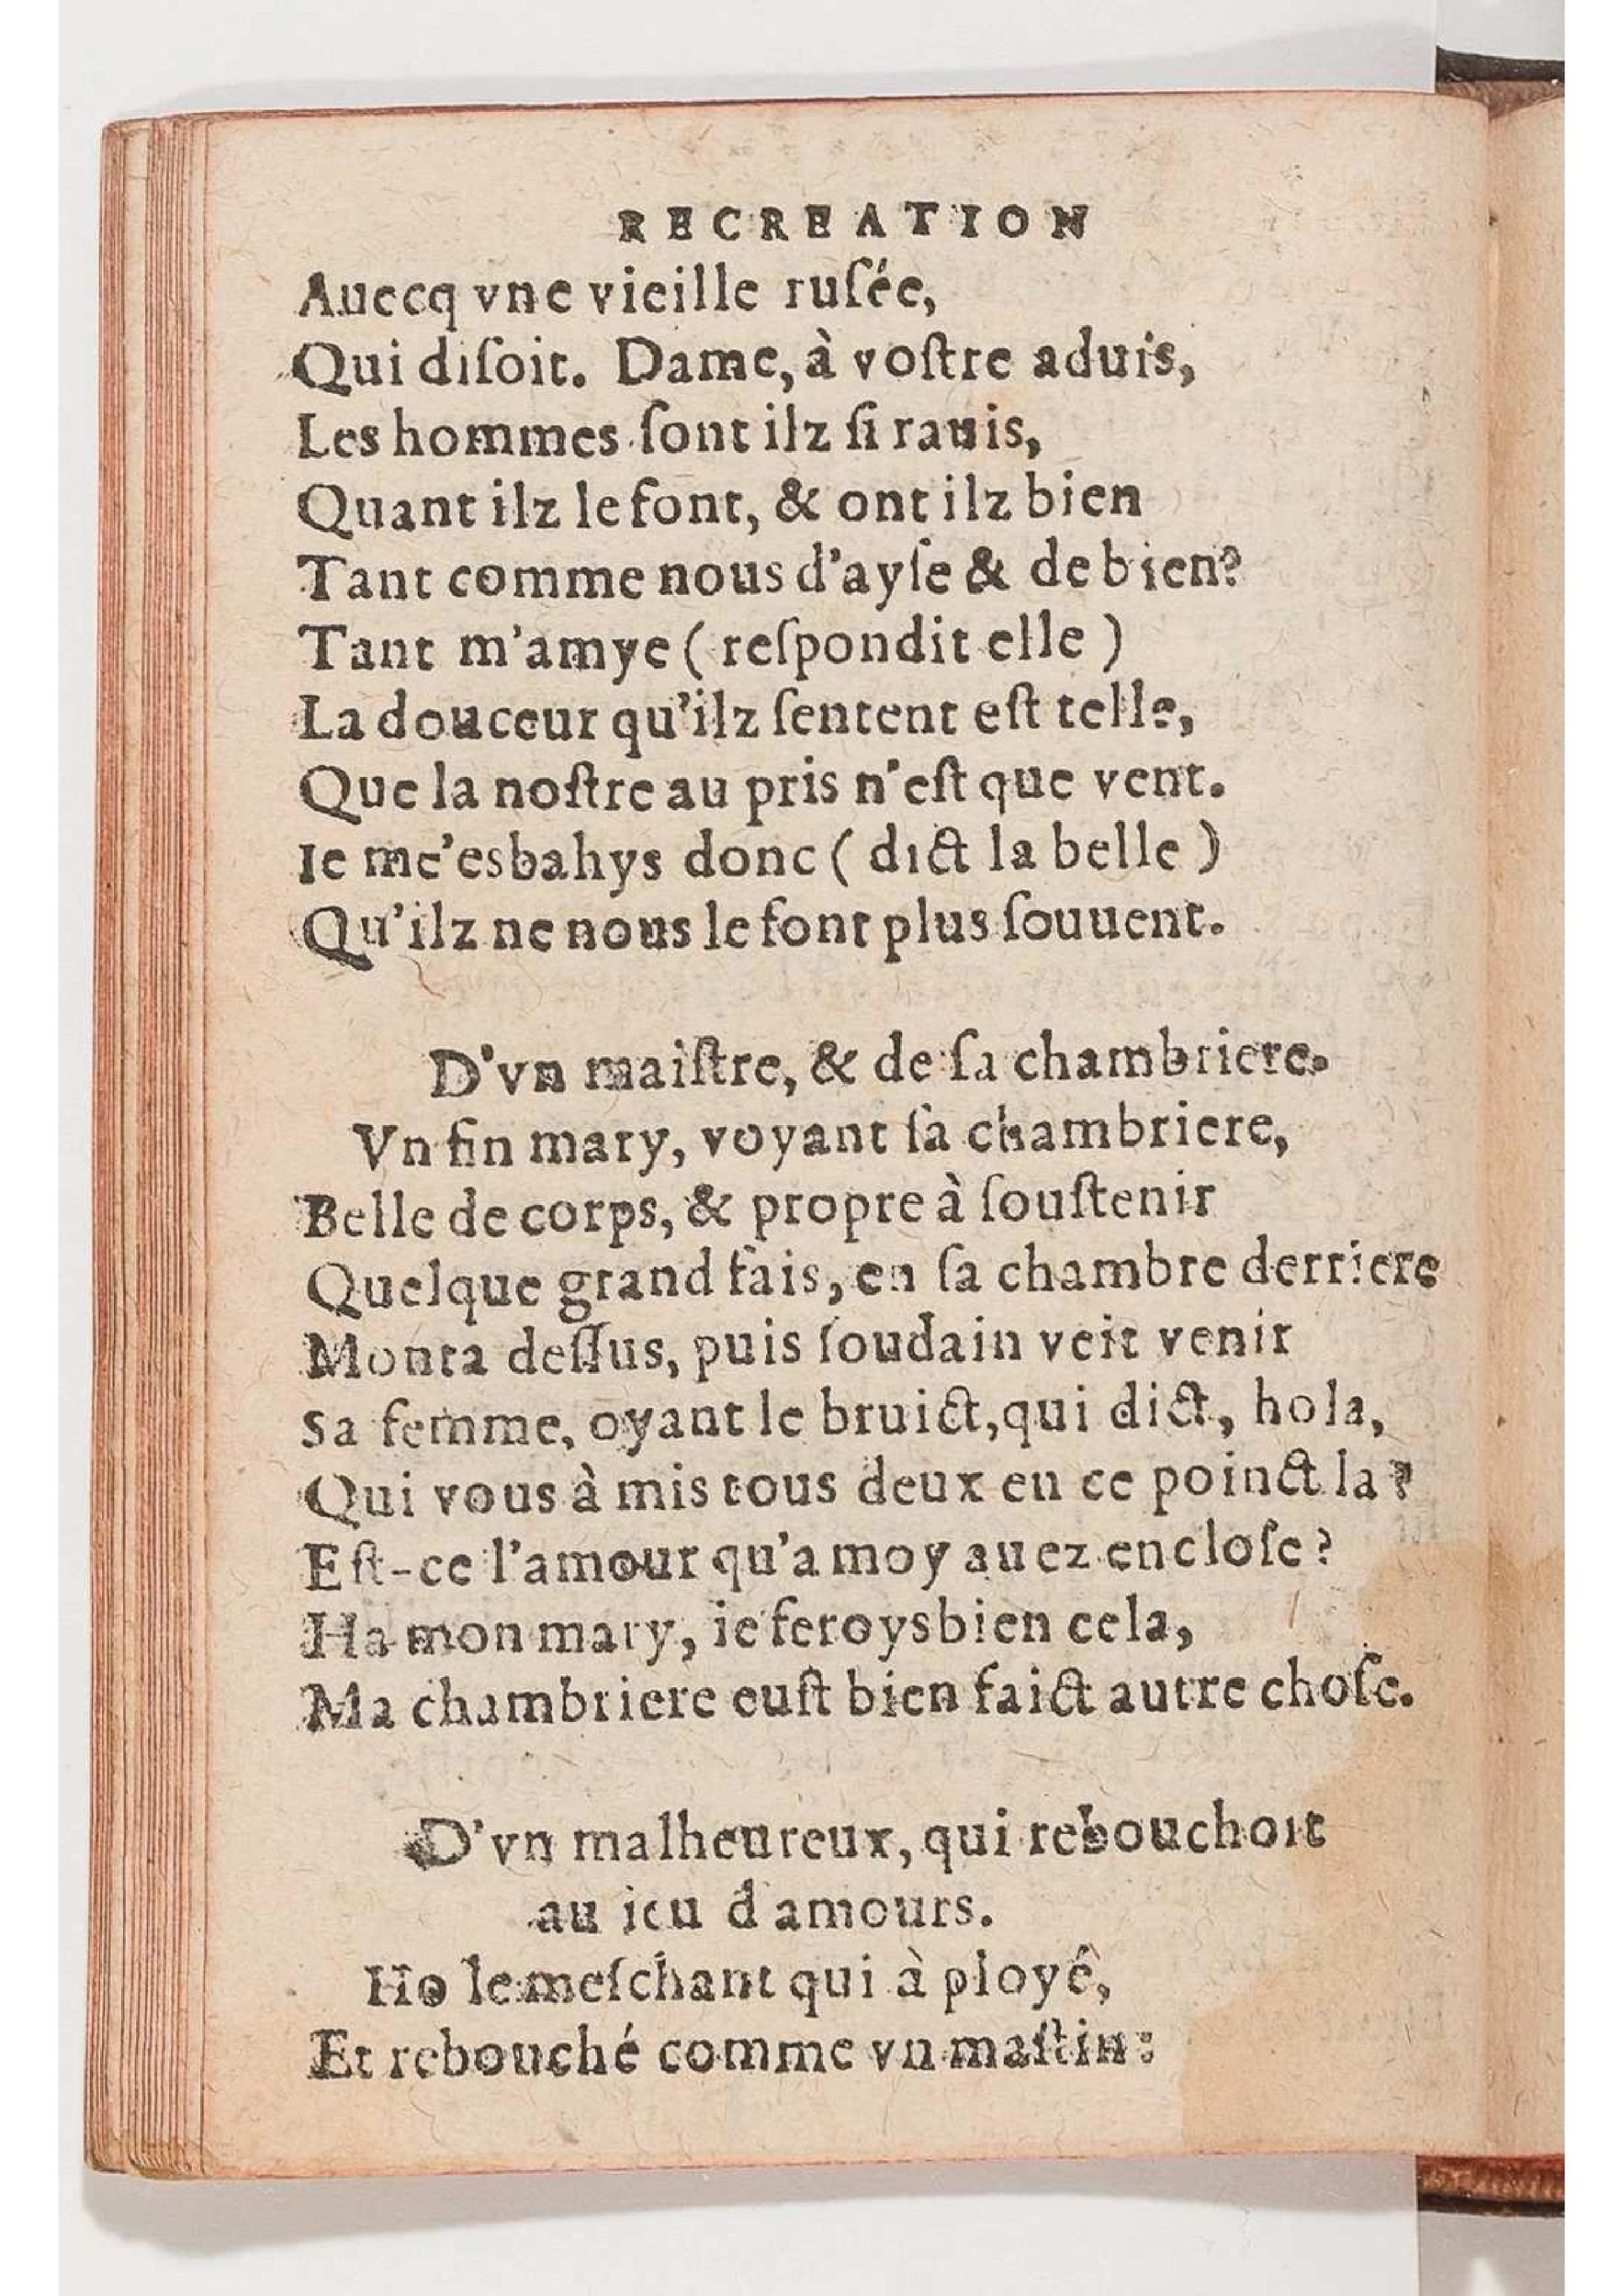 RECREATION
Auecq vne vieille ruſée,
Qui diſoit. Dame, à voſtre aduis,
Les hommes ſont ilz ſi rauis,
Quant ilz le font, & ont ilz bien
Tant comme nous d'ayſe & de bien?
Tant m'amye ( reſpondit elle )
La douceur qu'ilz ſentent eſt telle,
Que la noſtre au pris n'eſt que vent.
Ie me'esbahys donc ( dict la belle )
Qu'ilz ne nous le font plus ſouuent.
D'vn maiſtre, & de ſa chambriere.
Vn fin mary, voyant ſa chambriere,
Belle de corps, & propre à ſouſtenir
Quelque grand fais, en ſa chambre derriere
Monta deſſus, puis ſoudain veit venir
Sa femme, oyant le bruict, qui dict, hola,
Qui vous à mis tous deux en ce poinct la?
Eſt-ce l'amour qu'a moy auez encloſe?
Ha mon mary, ie feroys bien cela,
Ma chambriere euſt bien faict autre choſe.
D'vn malheureux, qui rebouchoit
au ieu d'amours.
Ho le meſchant qui à ployé,
Et rebouché comme vn maſtin: